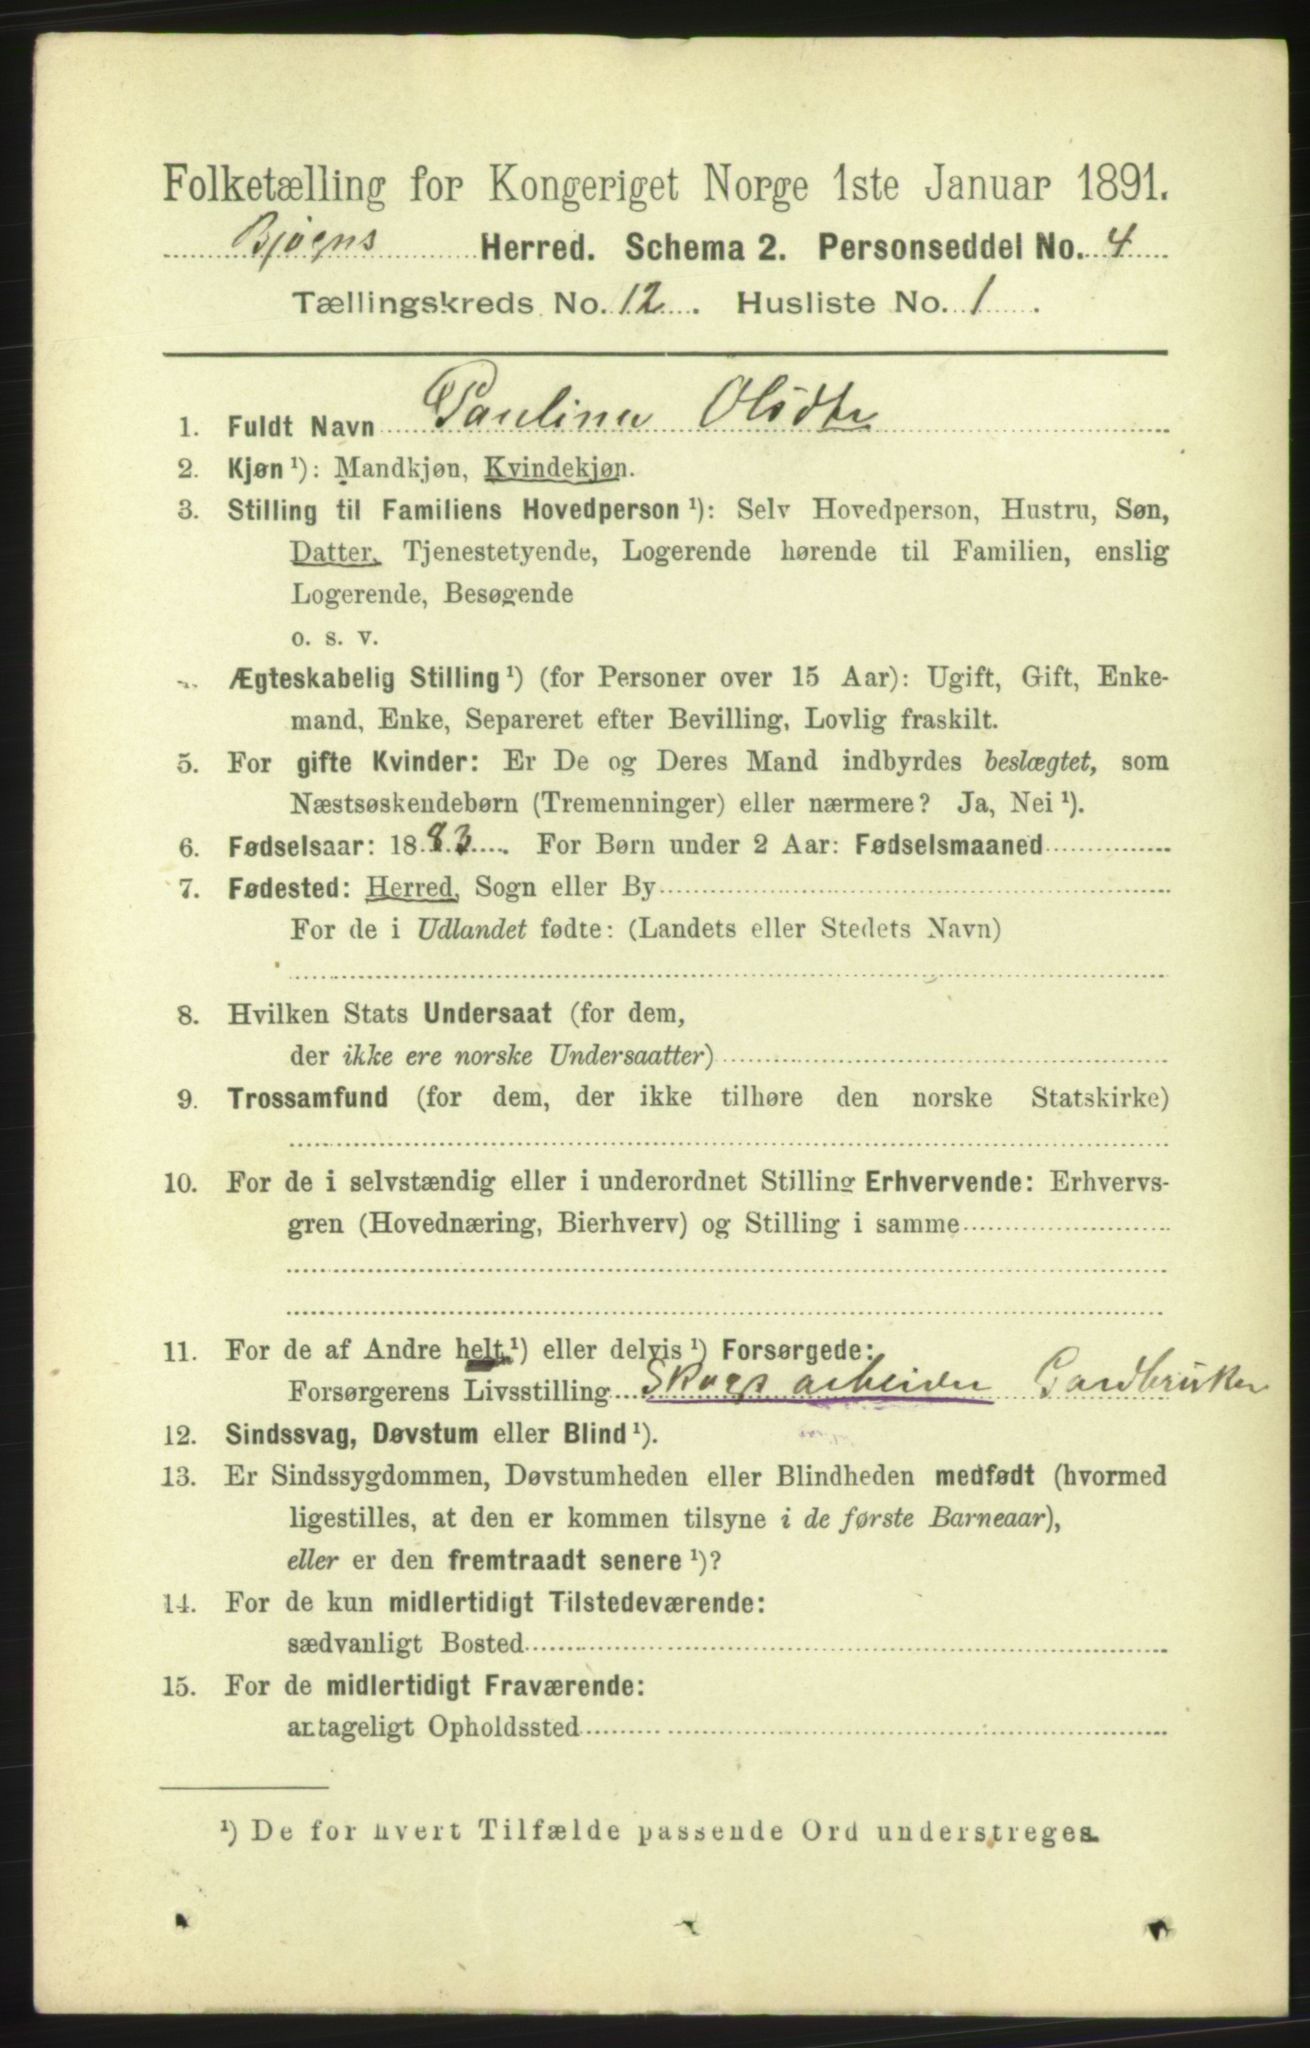 Folketælling for Kongeriget Norge 1ste Januar 1891.
Bjøgns Herred. Schema 2. Personseddel No. 4
Tællingskreds No. 12. Husliste No. 1.
1. Fuldt Navn Pauline Olsdtr
2. Kjøn ¹): Mandkjøn, Kvindekjøn.
3. Stilling til Familiens Hovedperson ¹): Selv Hovedperson, Hustru, Søn,
Datter, Tjenestetyende, Logerende hørende til Familien, enslig
Logerende, Besøgende
o. s. v.
Ægteskabelig Stilling ¹) (for Personer over 15 Aar): Ugift, Gift, Enke-
mand, Enke, Separeret efter Bevilling, Lovlig fraskilt.
5. For gifte Kvinder: Er De og Deres Mand indbyrdes beslægtet, som
Næstsøskendebørn (Tremenninger) eller nærmere? Ja, Nei ¹).
6. Fødselsaar: 1883. For Børn under 2 Aar: Fødselsmaaned
7. Fødested: Herred, Sogn eller By
For de i Udlandet fødte: (Landets eller Stedets Navn)
8. Hvilken Stats Undersaat (for dem,
der ikke ere norske Undersaatter)
9. Trossamfund (for dem, der ikke tilhøre den norske Statskirke)
10. For de i selvstændig eller i underordnet Stilling Erhvervende: Erhvervs-
gren (Hovednæring, Bierhverv) og Stilling i samme
11. For de af Andre helt ¹) eller delvis ¹) Forsørgede:
Forsørgerens Livsstilling Skogsarbeider Gardbruker
12. Sindssvag, Døvstum eller Blind ¹).
13. Er Sindssygdommen, Døvstumheden eller Blindheden medfødt (hvormed
ligestilles, at den er kommen tilsyne i de første Barneaar),
eller er den fremtraadt senere ¹)?
14. For de kun midlertidigt Tilstedeværende:
sædvanligt Bosted
15. For de midlertidigt Fraværende:
antageligt Opholdssted
¹) De for hvert Tilfælde passende Ord understreges.